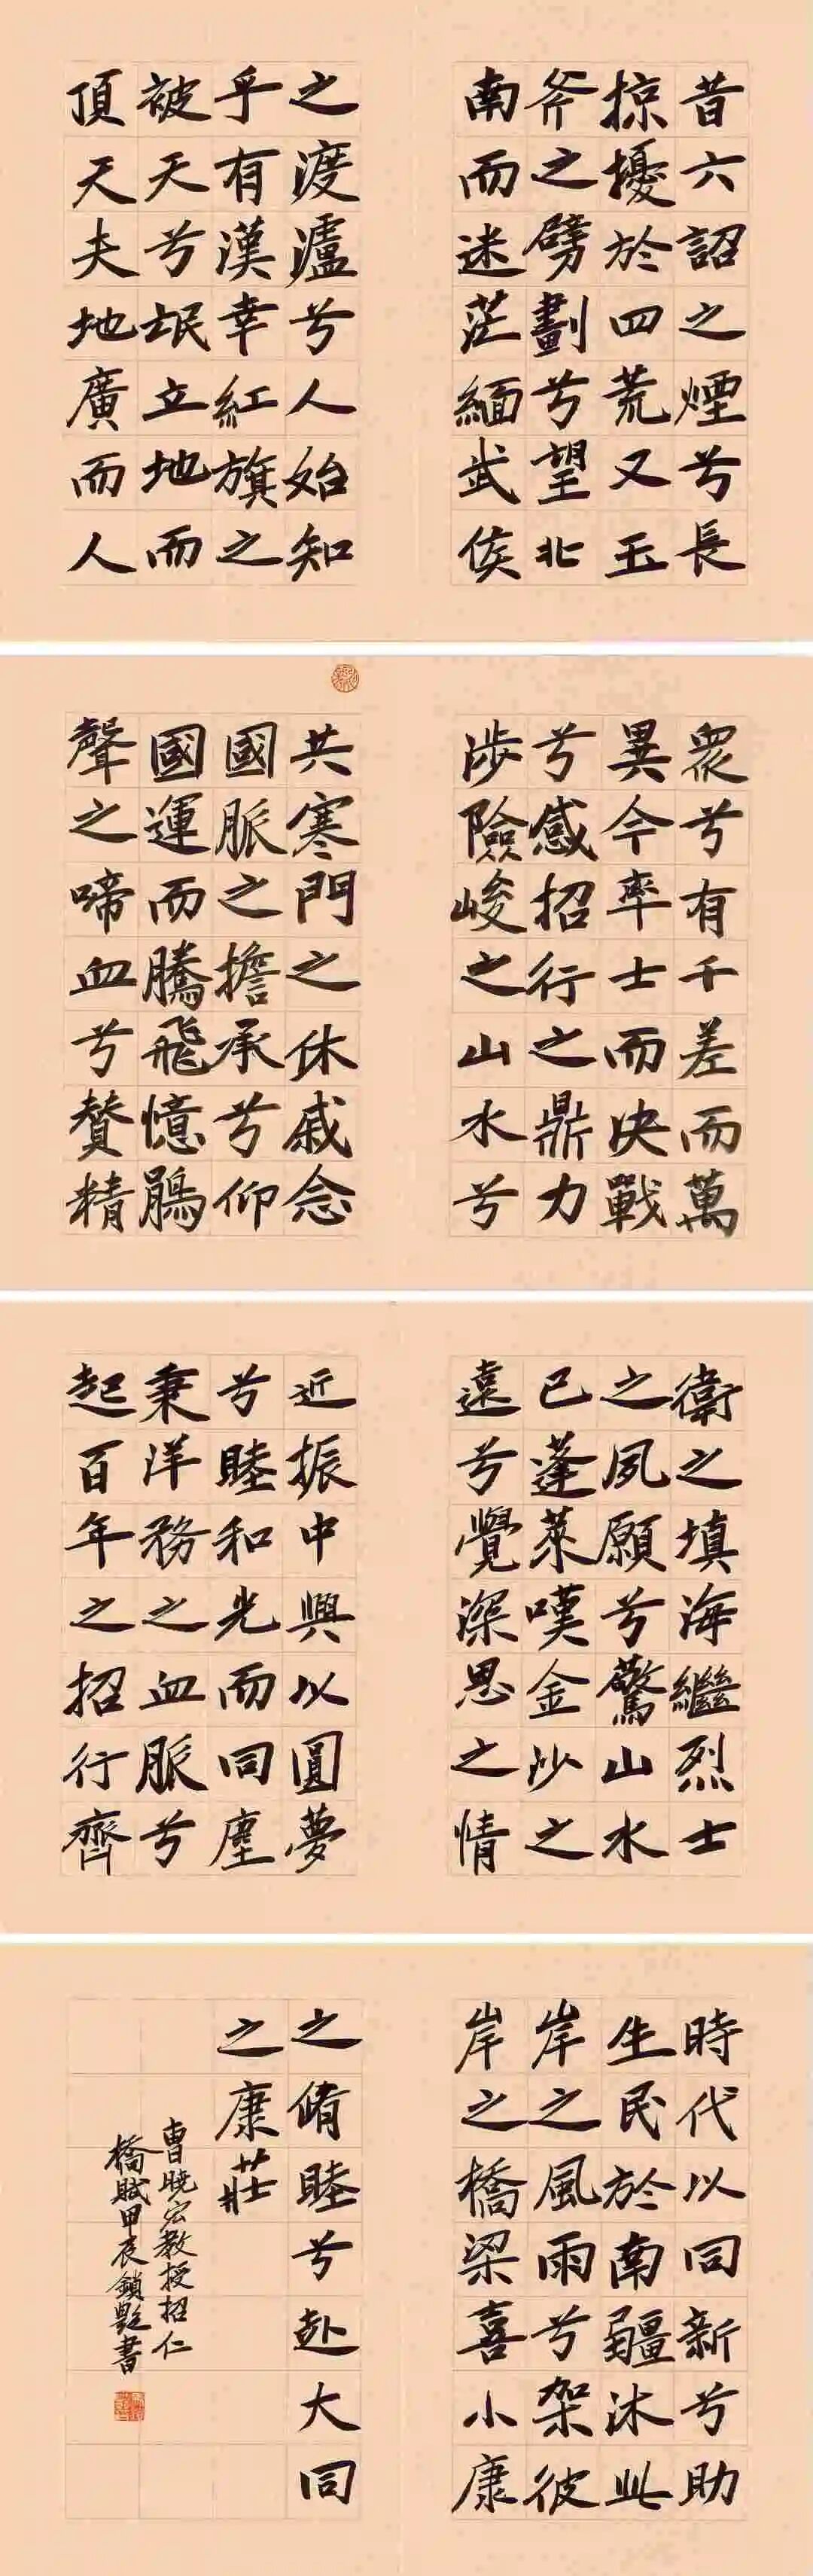 昔六詔之煙兮長
掠擾於四荒又玉
斧之劈劃兮望北
南而迷茫緬武侯
之渡瀘兮人始知
乎有漢幸紅旗之
被天兮氓立地而
頂天夫地廣而人
衆兮有千差而萬
異今率士而決戰
兮感招行之鼎力
涉險峻之山水兮
共寒門之休戚念
國脈之擔承兮仰
國運而騰飛憶鵑
聲之啼血兮贊精
衛之填海繼烈士
之夙願兮驚山水
已蓬萊嘆金沙之
遠兮覺深思之情
近振中興以圓夢
兮睦和光而同塵
秉洋務之血脈兮
起百年之招行齊
時代以同新兮助
生民於南疆沐此
岸之風雨兮架彼
岸之橋梁喜小康
之脩睦兮赴大同
之康莊
曹曉宏教授招仁
橋賦甲辰鎖艷書